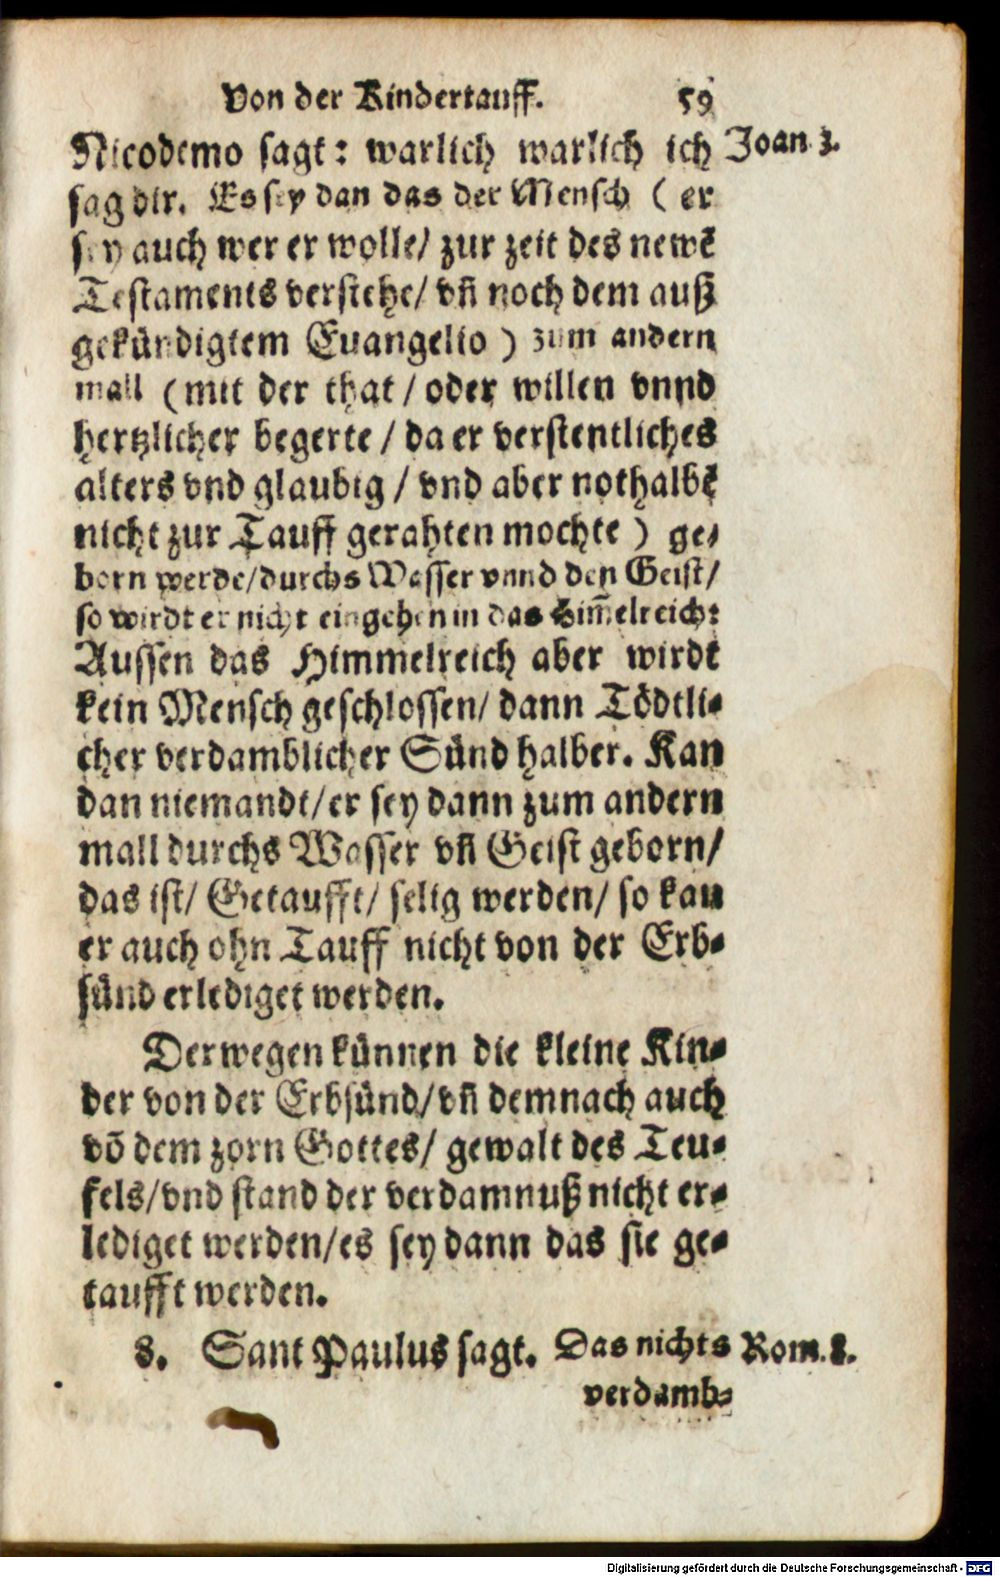 Von der Kindertauff. 59
Nicodemo sagt: warlich warlich ich Joan. 3.
sag dir. Es sey dan das der Mensch (er
sey auch wer er wolle/ zur zeit des newē
Testaments verstehe/ vñ noch dem auß
gekündigtem Euangelio) zum andern
mall (mit der that/ oder willen vnnd
hertzlicher begerte/ da er verstentliches
alters vnd glaubig/ vnd aber nothalbē
nicht zur Tauff gerahten mochte) ge-
born werde/durchs Wasser vnnd den Geist/
so wirdt er nicht eingehen in das Him̄elreich:
Aussen das Himmelreich aber wirdt
kein Mensch geschlossen/ dann Tödtli-
cher verdamblicher Sünd halber. Kan
dan niemandt/er sey dann zum andern
mall durchs Wasser vñ Geist geborn/
das ist/ Getaufft/ selig werden/ so kan
er auch ohn Tauff nicht von der Erb-
sünd erlediget werden.
Derwegen künnen die kleine Kin-
der von der Erbsünd/vñ demnach auch
võ dem zorn Gottes/ gewalt des Teu-
fels/vnd stand der verdamnuß nicht er-
lediget werden/es sey dann das sie ge-
taufft werden.
8. Sant Paulus sagt. Das nichts Rom. 8.
verdamb-
Digitalisierung gefördert durch die Deutsche Forschungsgemeinschaft - DFG